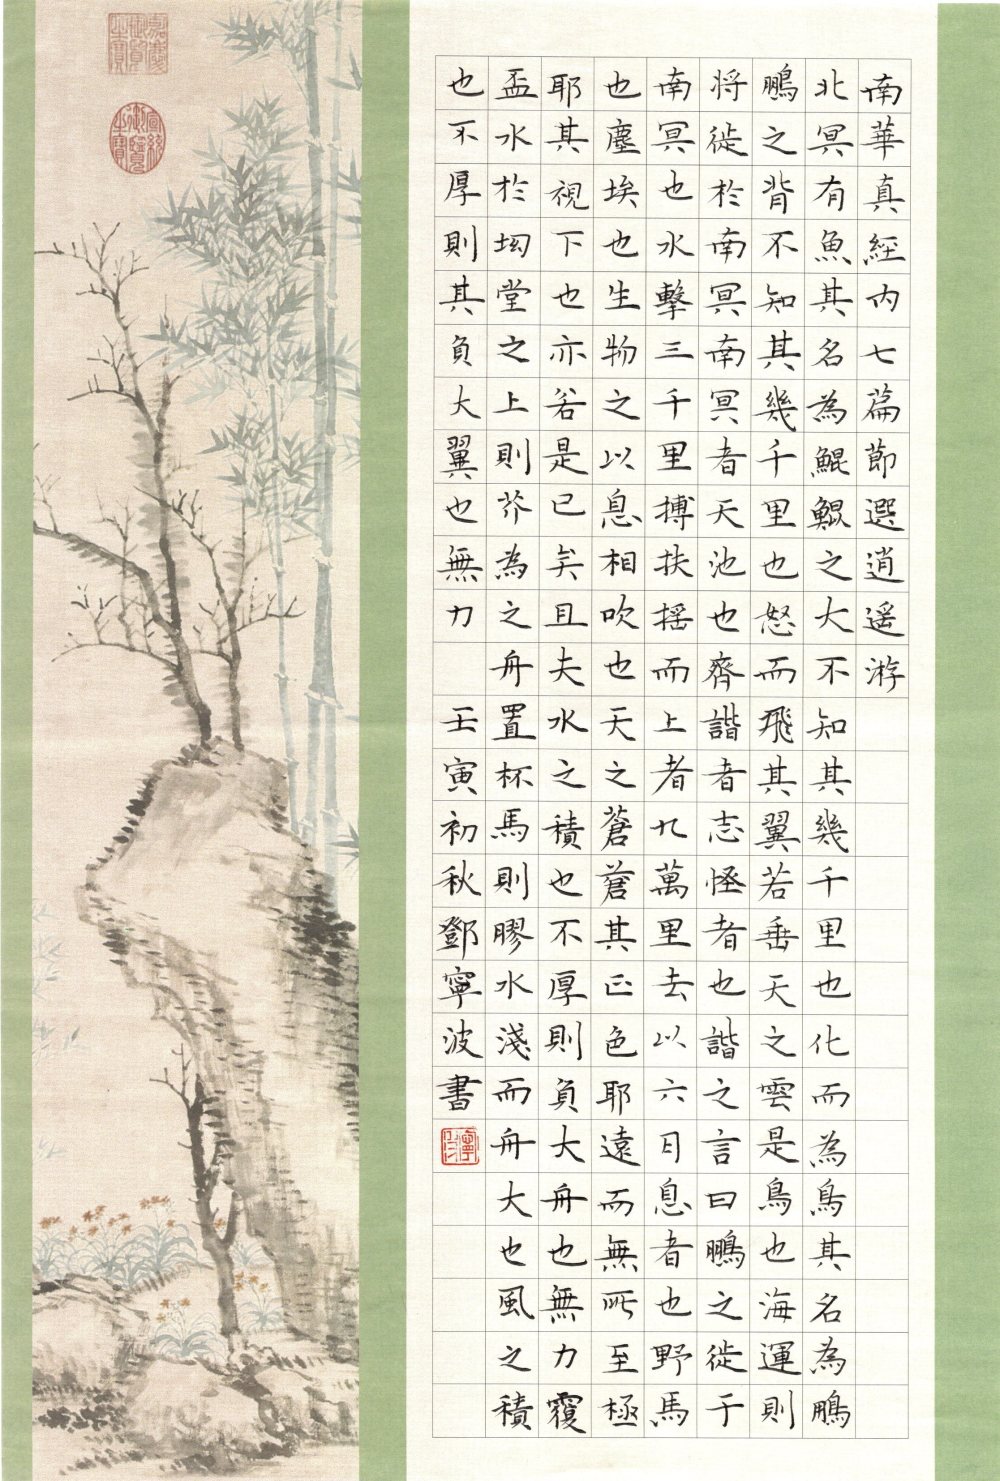 南華真經内七篇節選逍遥游
北冥有魚其名為鯤鯤之大不知其幾千里也化而為鳥其名為鵬
鵬之背不知其幾千里也怒而飛其翼若垂天之雲是鳥也海運則
将徙於南冥南冥者天池也齊諧者志怪者也諧之言曰鵬之徙于
南冥也水擊三千里搏扶摇而上者九萬里去以六月息者也野馬
也塵埃也生物之以息相吹也天之蒼蒼其正色耶遠而無所至極
耶其視下也亦若是已矣且夫水之積也不厚則負大舟也無力覆
盃水於坳堂之上則芥為之舟置杯馬則膠水淺而舟大也風之積
也不厚則其負大翼也無力 壬寅初秋鄧寧波書
嘉慶御覽之寶
宣統御覽之寶